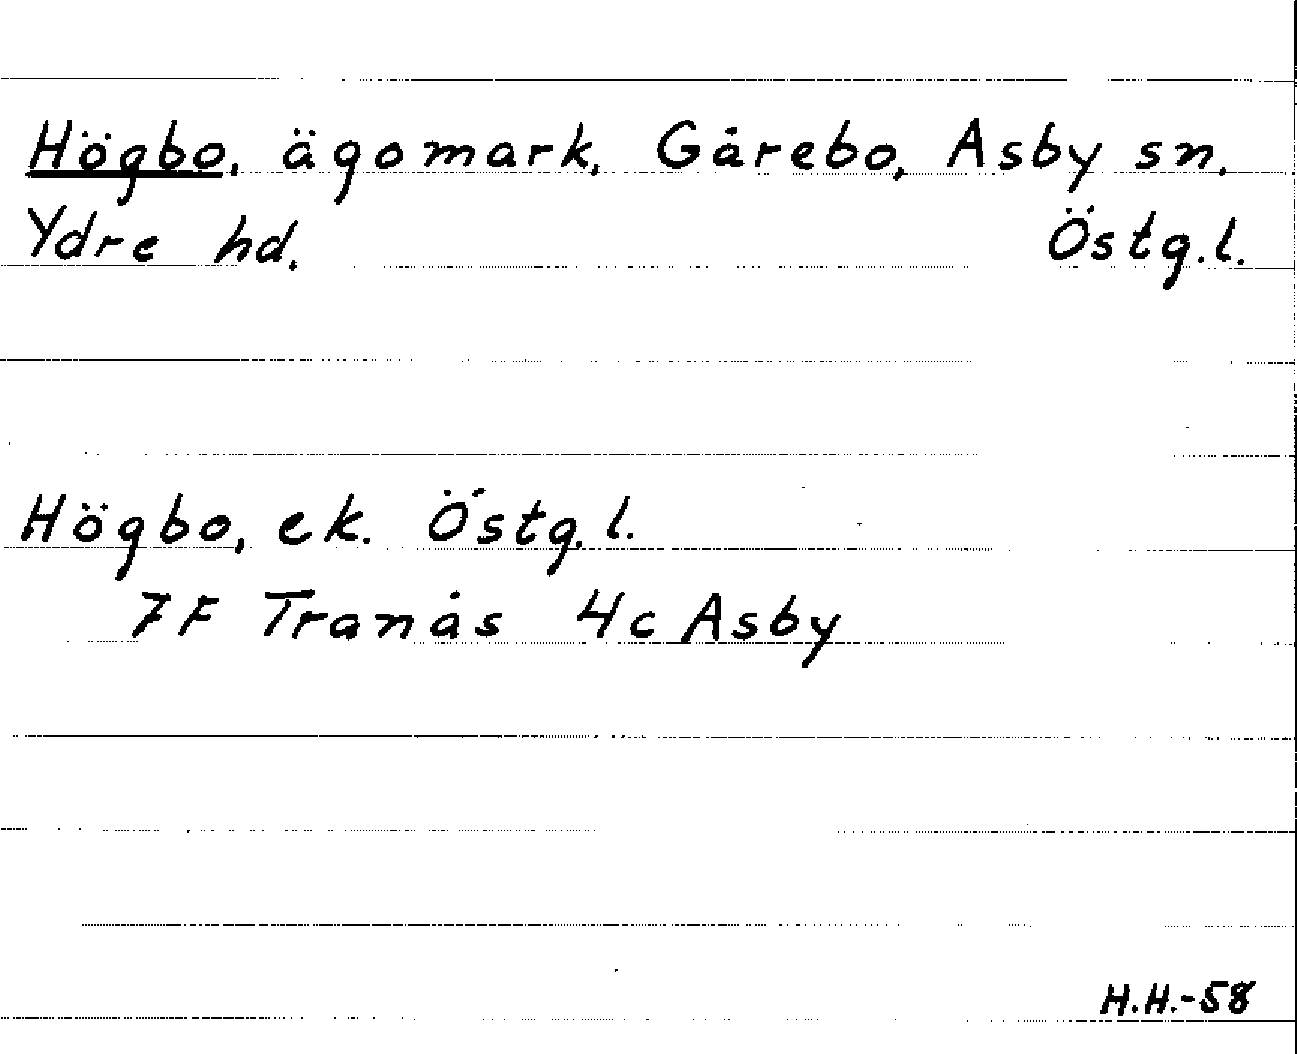 Högbo, ägomark, Gårebo, Asby sn.
Ydre hd. Östg.l.
Högbo, ek. Östg.l.
7F Tranås 4c Asby
H.H.-58